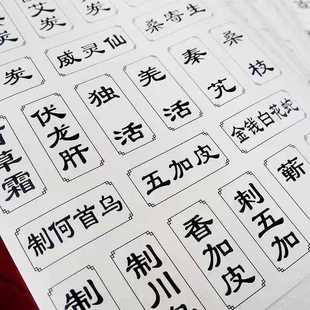 艾炭
炭
桑寄生
威灵仙
桑枝
秦艽
羌活
独活
伏龙肝
草霜
金钱白花蛇
五加皮
制何首乌
蕲
刺五加
香加皮
制川
制